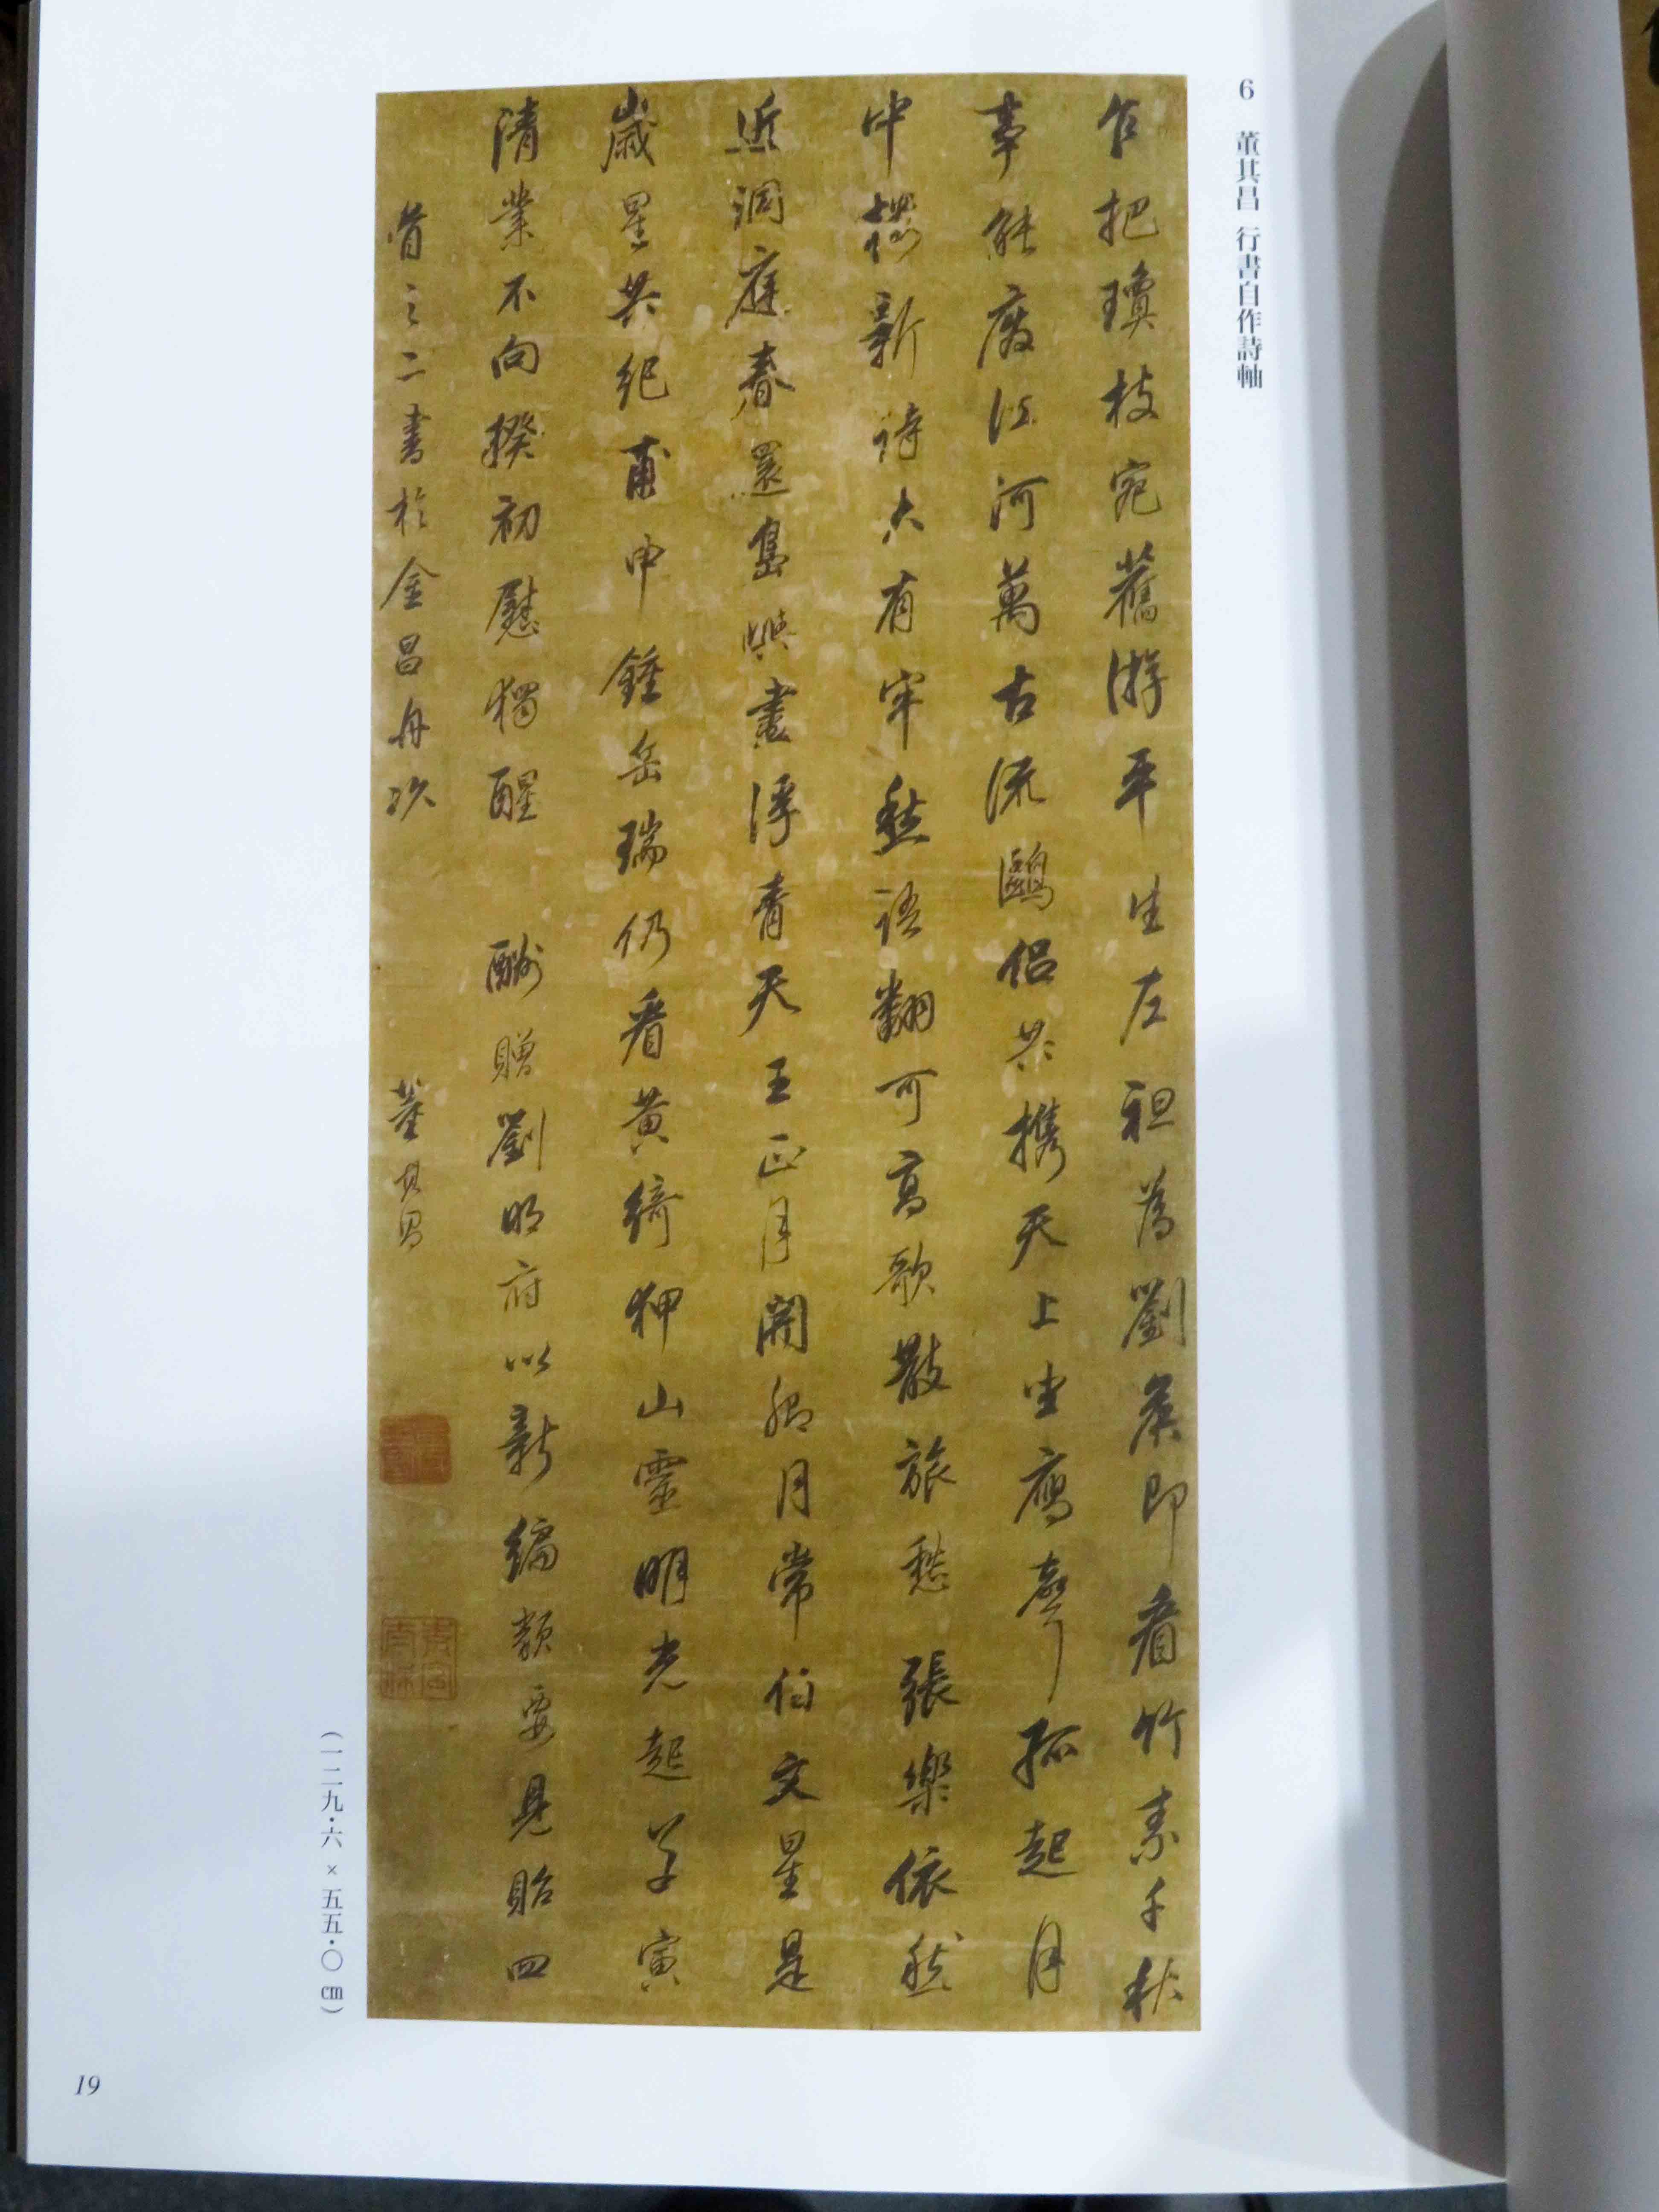 6 董其昌 行書自作詩軸
乍把瓊枝宛舊游平生左袒為劉矦即看竹素千秋
事能廢江河萬古流鷗侶共携天上坐鴈聲孤起月
中樓新詩大有牢愁語翻可高歌散旅愁 張樂依然
近洞庭春還島嶼畫浮青天王正月開卿月常伯文星是
歲星共紀甫申鍾岳瑞仍看黃綺狎山靈明光起草寅
清業不向揆初慰獨醒 酬贈劉明府以新編類要見貽四
首之二書於金昌舟次 董其昌
(一二九・六×五五・〇㎝)
19